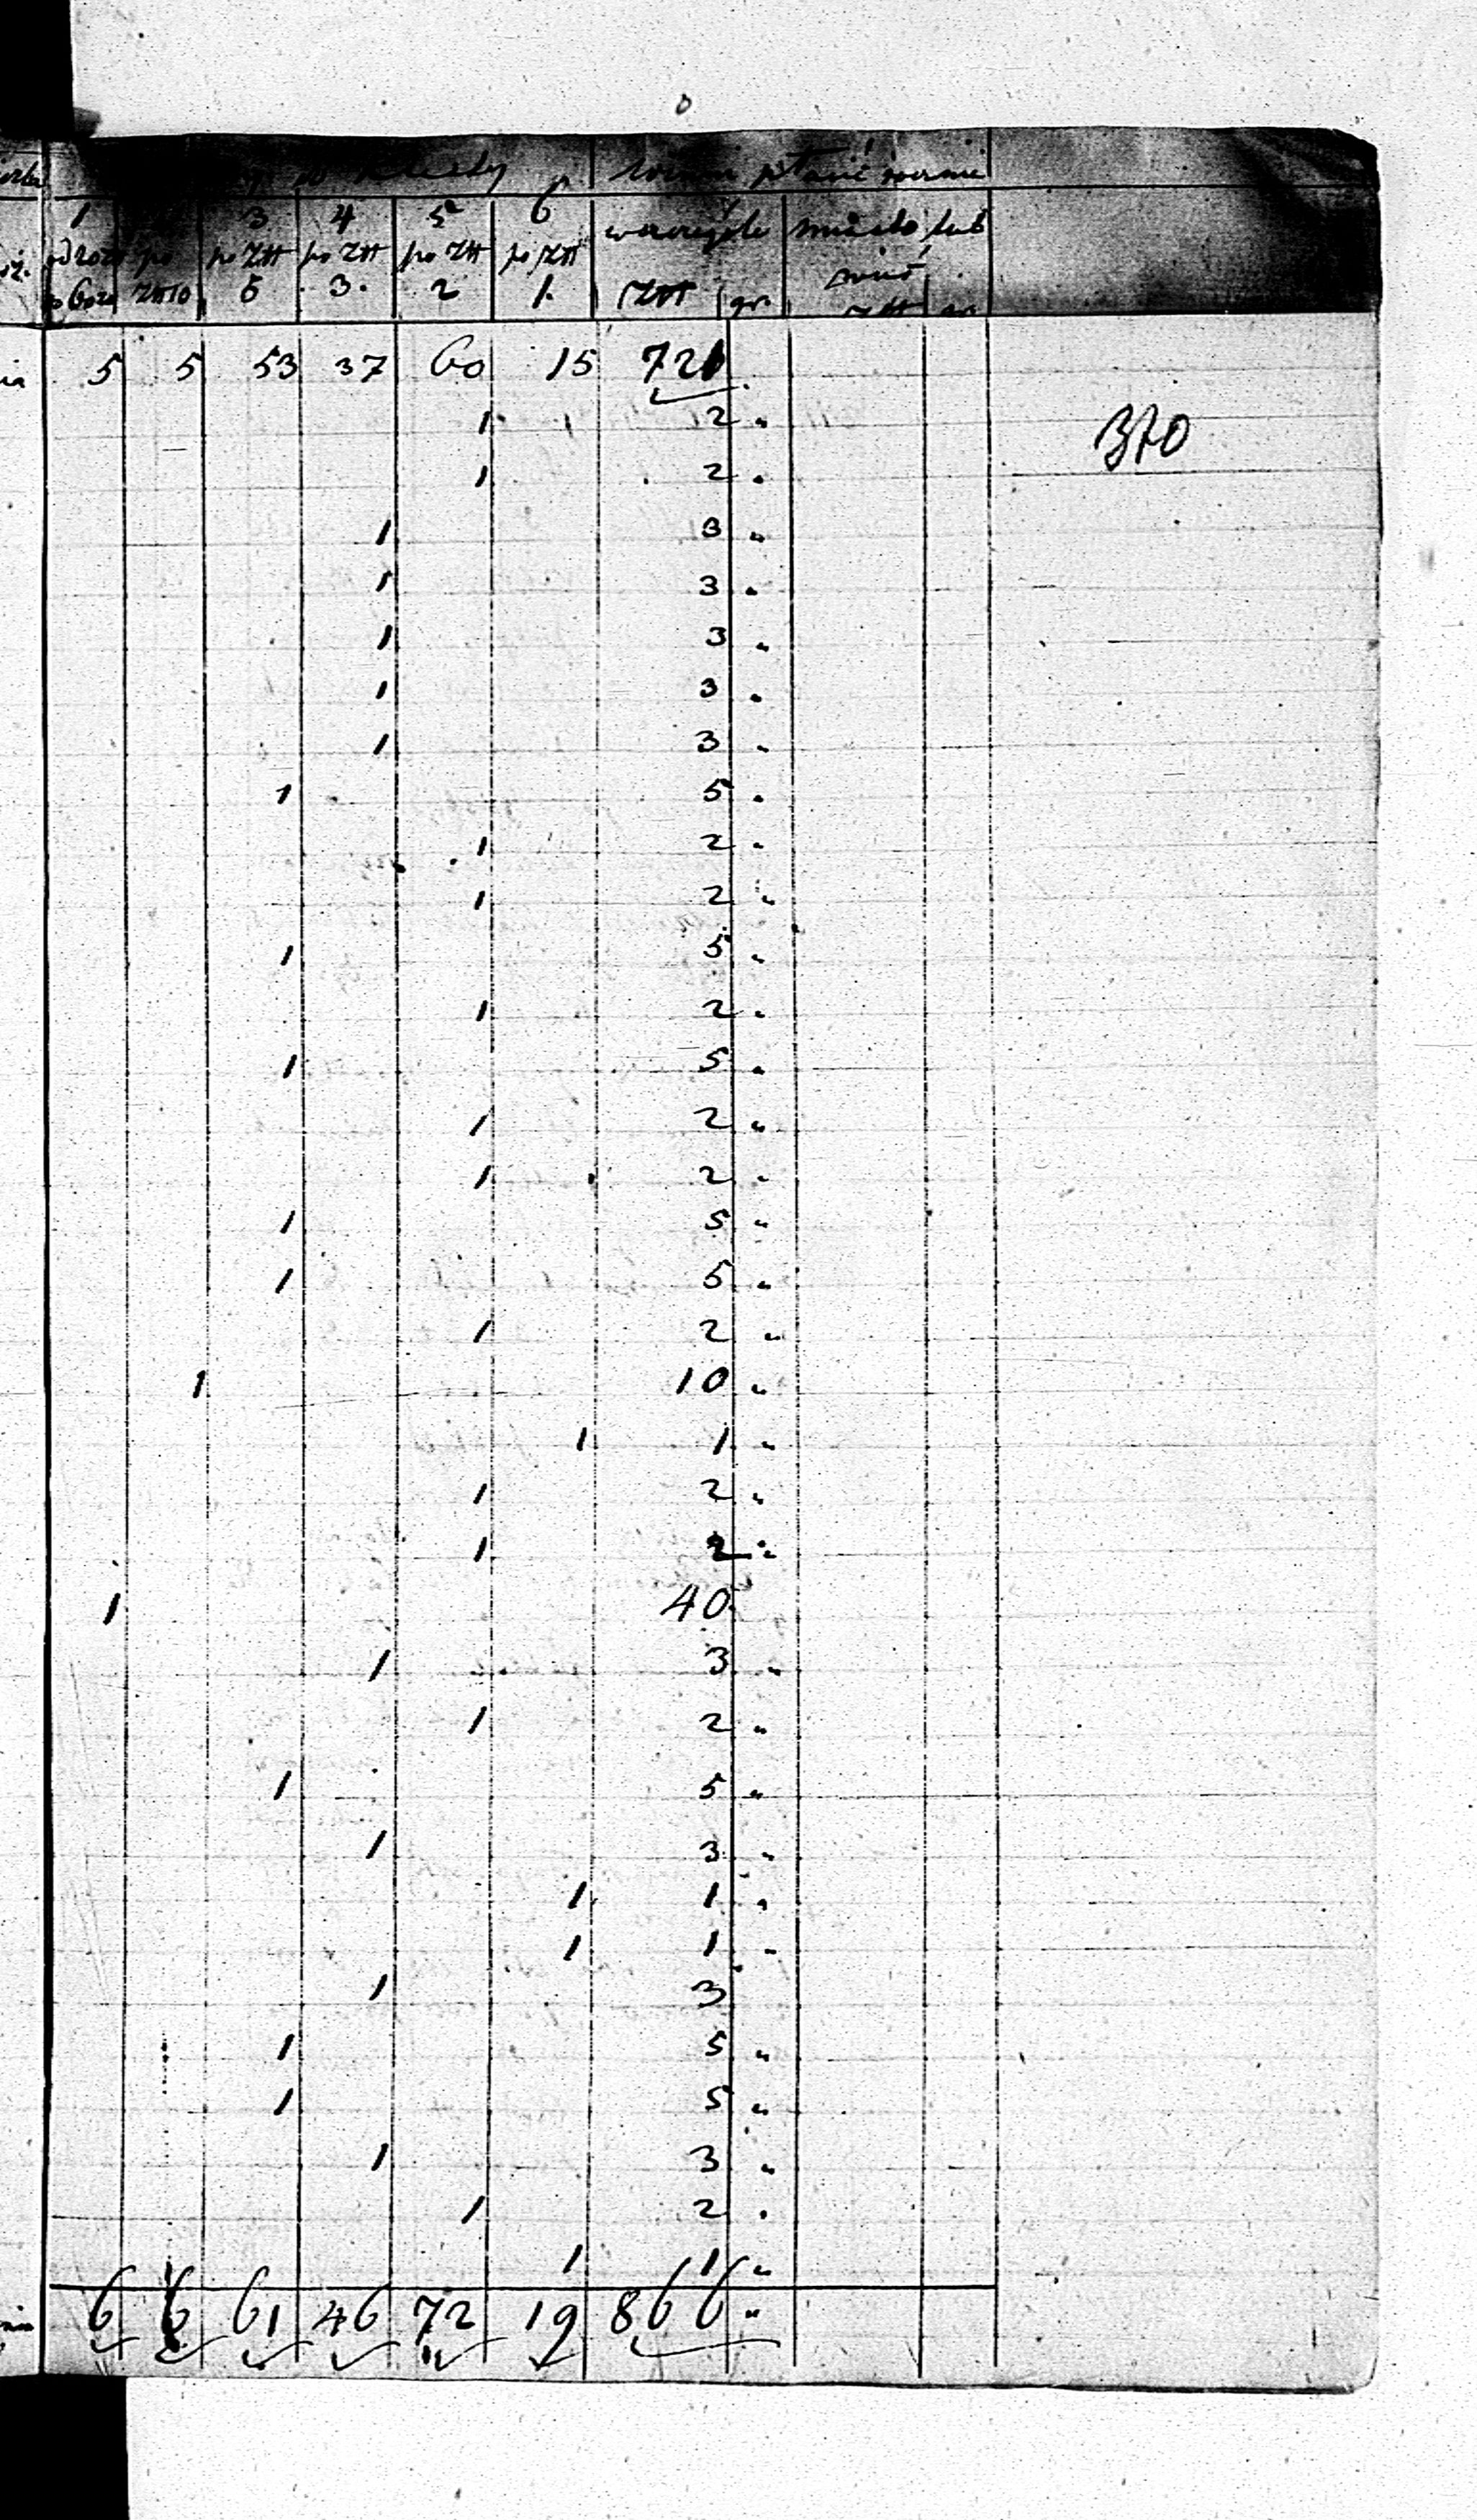 1 3 4 5 6
po Złł po Złł po Złł po Złł szczególe miasto lub
5 3. 2 1. Złł gr. wieś
5 5 53 37 60 15 721
1 2 "
370
1 2 "
1 3 "
1 3 "
1 3 "
1 3 "
1 3 "
1 5 "
1 2 "
1 2 "
1 5 "
1 2 "
1 5 "
1 2 "
1 2 "
1 5 "
1 5 "
1 2 "
1 10 "
1 1 "
1 2 "
1 2 "
1 40
1 3 "
1 2 "
1 5 "
1 3 "
1 1 "
1 1 "
1 3
1 5 "
1 5 "
1 3 "
1 2 "
1 1 "
6 6 61 46 72 19 866 "